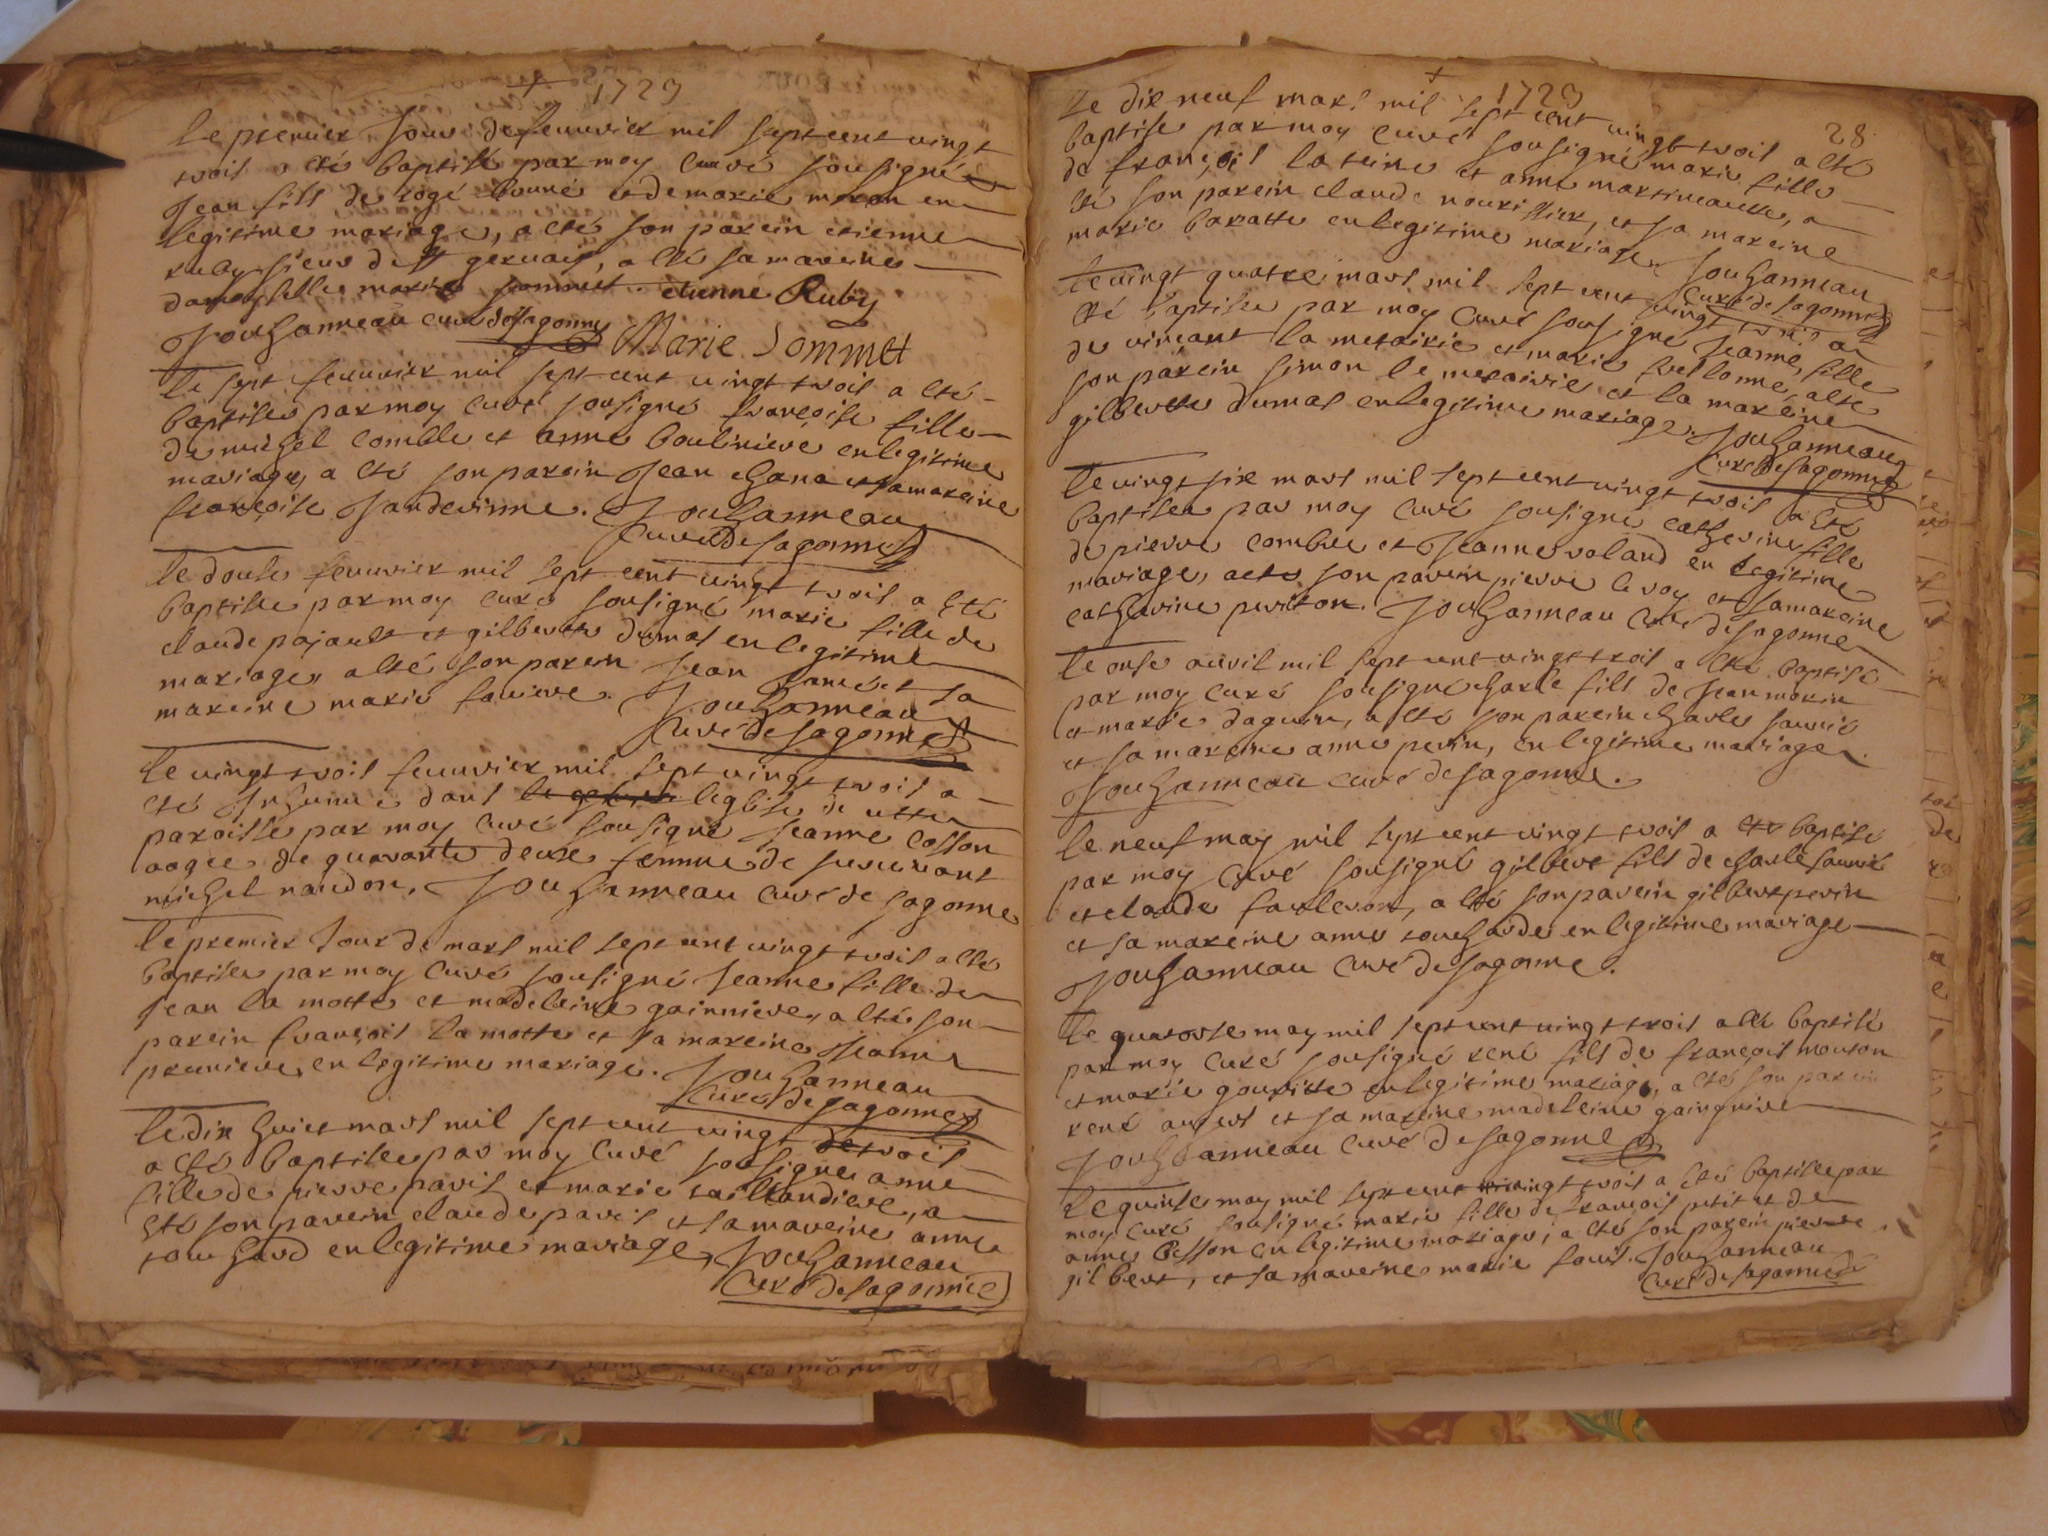 + 1723
le premier Jour de feuurier mil sept cent uingt
trois a eté baptisé par moy curé sousigné
Jean fils de rogé et de marie moron en
legitime mariage, a eté son parein etienne
ruby sieur de st geruais, a eté sa mareine
damoyselle marie sommet. etienne Ruby
Jouhanneau curé de sagonne Marie Sommet
le sept feuurier mil sept cent uingt trois a eté
baptisée par moy curé sousigné françoise fille
de michel comble et anne boulinieré en legitime
mariage, a eté son parein Jean chana et sa mareine
françoise Jandevinne. Jouhanneau
curé de sagonne
le douse feuurier mil sept cent uingt trois a eté
baptisée par moy curé sousigné marie fille de
claude pajault et gilberte dumas en legitime
mariage, a eté son parein Jean et sa
mareine marie Jouhanneau
curé de sagonne
le uingt trois feuurier mil sept uingt trois a
eté Inhumée dans leglise de cette
paroisse par moy curé sousigné Jeanne cosson
aagée de quarante deux femme de suruiuant
michel naudon. Jouhanneau curé de sagonne
le premier Jour de mars mil sept cent uingt trois a eté
baptisée par moy curé sousigné Jeanne fille de
Jean la motte et madeleine gainniere, a eté son
parein françois la motte et sa mareine Jeanne
pruniere, en legitime mariage. Jouhanneau
curé de sagonne
le dix huict mars mil sept cent uingt trois
a eté baptisée par moy curé sousigné anne
fille de pierre paris et marie taillandiere, a
eté son parein claude paris et sa mareine anne
touhard en legitime mariage, Jouhanneau
curé de sagonne
+ 1723
28
le dix neuf mars mil sept cent uingt trois a eté
baptisée par moy curé sousigné marie fille
de françois et anne martineautte, a
eté son parein claude nourissier, et sa mareine
marie baratte en legitime mariage. Jouhanneau
curé de sagonne
le uingt quatre mars mil sept cent uingt trois a
eté baptisée par moy curé sousigné Jeanne, fille
de uincant la metairie et marie a eté
son parein simon le metairie et la mareine
gilberte dumas en legitime mariage. Jouhanneau
curé de sagonne
le uingt six mars mil sept cent uingt trois a eté
baptisée par moy curé sousigné catherine fille
de pierre combre et Jeanne roland en legitime
mariage, a eté son parein pierre le roy et sa mareine
catherine periton. Jouhanneau curé de sagonne
le onse auril mil sept cent uingt trois a eté baptisé
par moy curé sousigné charle fils de Jean morin
et marie daguin, a eté son parein charle sauué
et sa mareine anne perin, en legitime mariage.
Jouhanneau curé de sagonne.
le neuf may mil sept cent uingt trois a eté baptisé
par moy curé sousigné gilbert fils de charle sauué
et claude a eté son parein gilbert perin
et sa mareine anne touharde en legitime mariage
Jouhanneau curé de sagonne.
le quatorse may mil sept cent uingt trois a eté baptisé
par moy curé sousigné rené fils de françois mouton
et marie gouritte en legitime mariage, a eté son parein
rené et sa mareine madeleine gaingnire
Jouhanneau curé de sagonne
le quinse may mil sept cent uingt trois a eté baptisée par
moy curé sousigné marie fille de françois petit et de
anne cosson en legitime mariage, a eté son parein pierre
gilbert, et sa mareine marie Jouhanneau
curé de sagonne